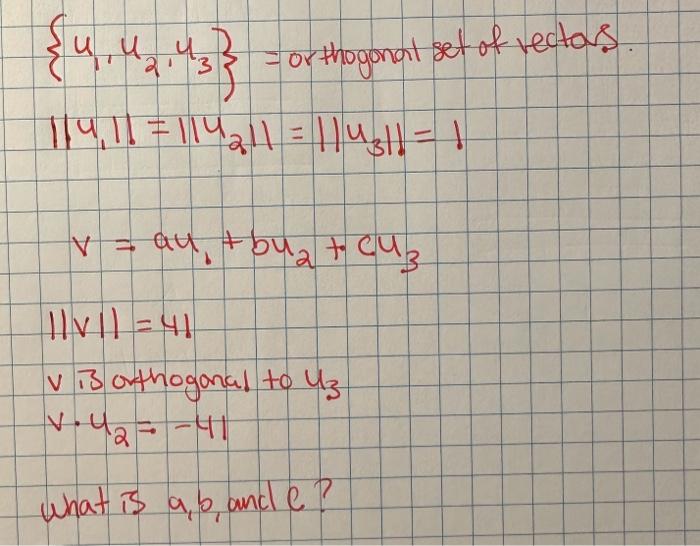 {u₁, u₂, u₃} = orthogonal set of vectors.
||u₁|| = ||u₂|| = ||u₃|| = 1
v = au₁ + bu₂ + cu₃
||v|| = 41
v is orthogonal to u₃
v · u₂ = -41
what is a, b, and c?